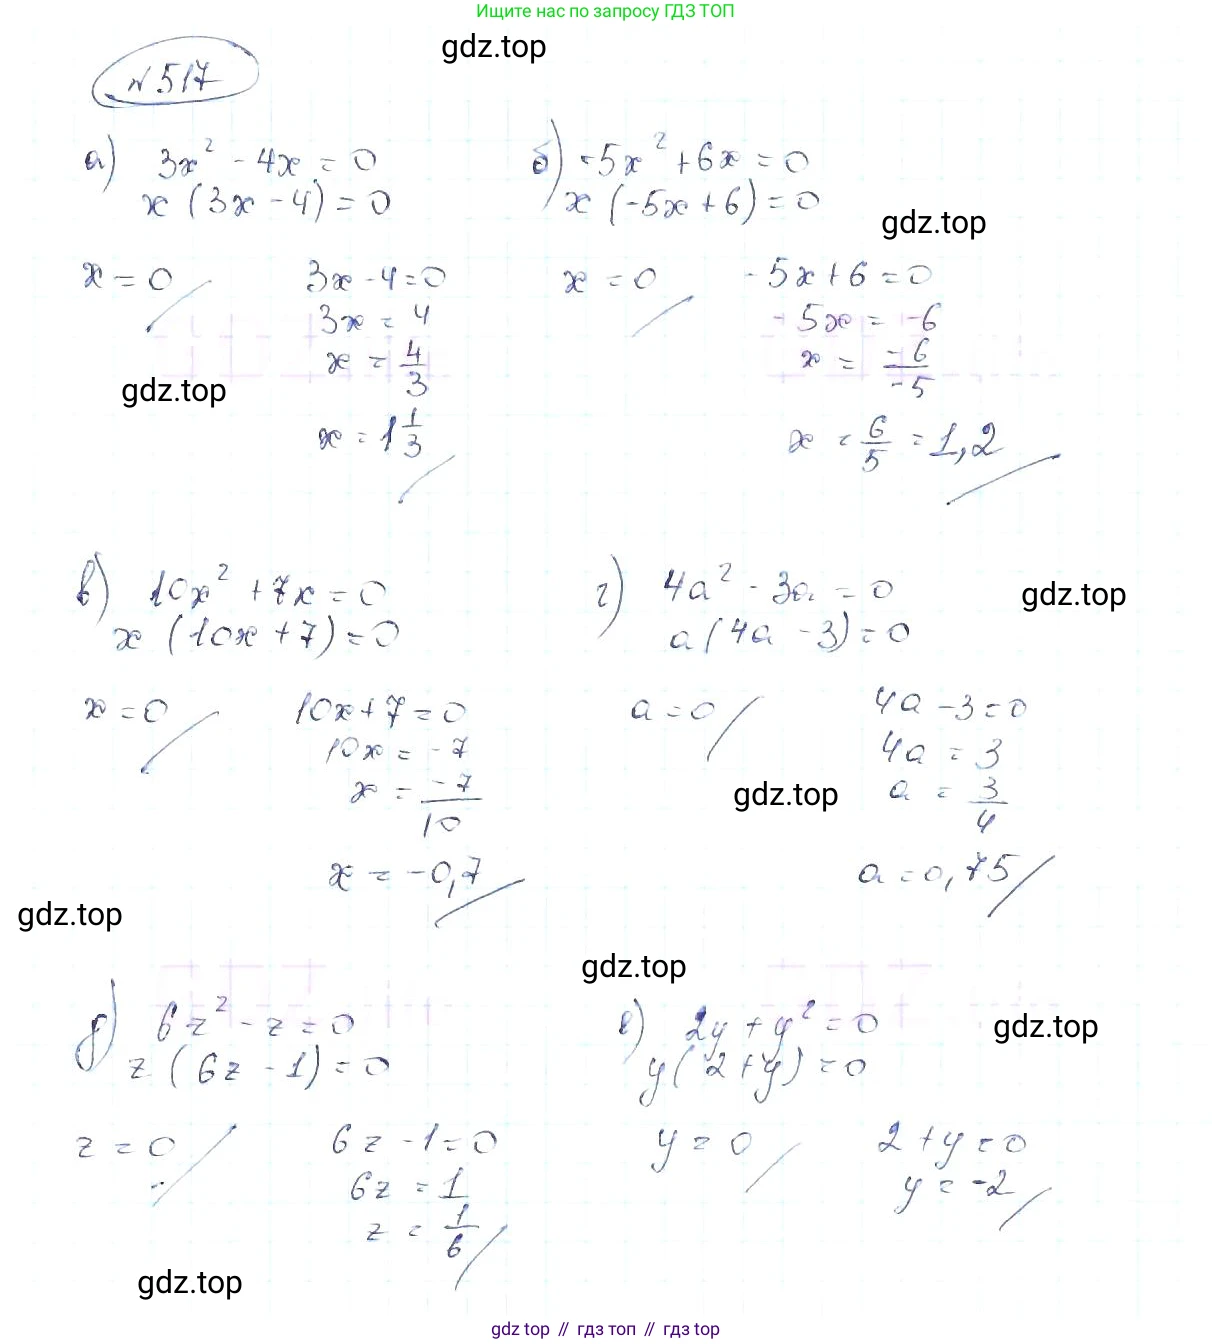 Ищите нас по запросу ГДЗ ТОП
gdz.top
№517
а) 3x² - 4x = 0
x (3x - 4) = 0
x = 0
3x - 4 = 0
3x = 4
x = 4/3
x = 1 1/3
gdz.top
б) -5x² + 6x = 0
x (-5x + 6) = 0
gdz.top
x = 0
-5x + 6 = 0
-5x = -6
x = -6/-5
x = 6/5 = 1,2
в) 10x² + 7x = 0
x (10x + 7) = 0
x = 0
10x + 7 = 0
10x = -7
x = -7/10
x = -0,7
gdz.top
г) 4a² - 3a = 0
a (4a - 3) = 0
gdz.top
a = 0
4a - 3 = 0
4a = 3
a = 3/4
a = 0,75
gdz.top
gdz.top
д) 6z² - z = 0
z (6z - 1) = 0
z = 0
6z - 1 = 0
6z = 1
z = 1/6
gdz.top
е) 2y + y² = 0
y (2 + y) = 0
gdz.top
y = 0
2 + y = 0
y = -2
gdz top // гдз топ // гдз top